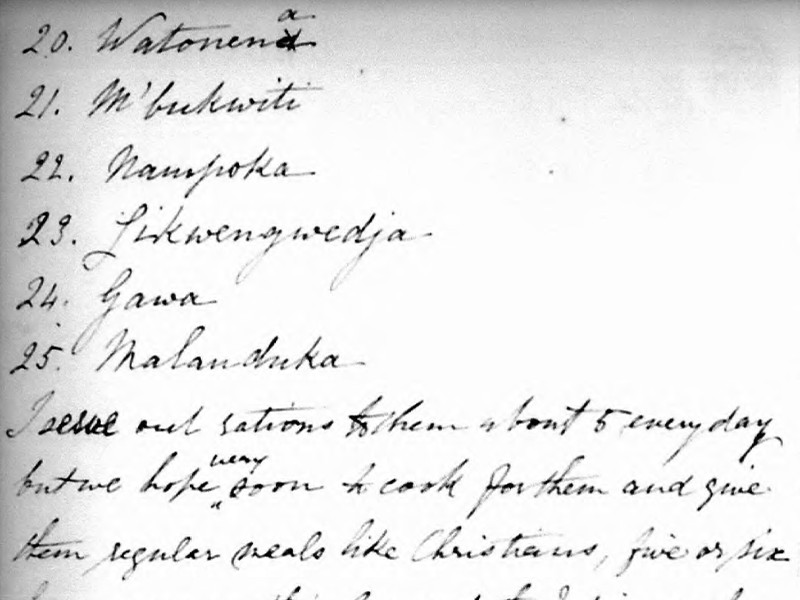 20. Watonena
21. M'bukwiti
22. Nampoka
23. Likwengwedja
24. Gawa
25. Malanduka
I serve out rations to them about 5 every day
but we hope very soon to cook for them and give
them regular meals like Christians, five or six